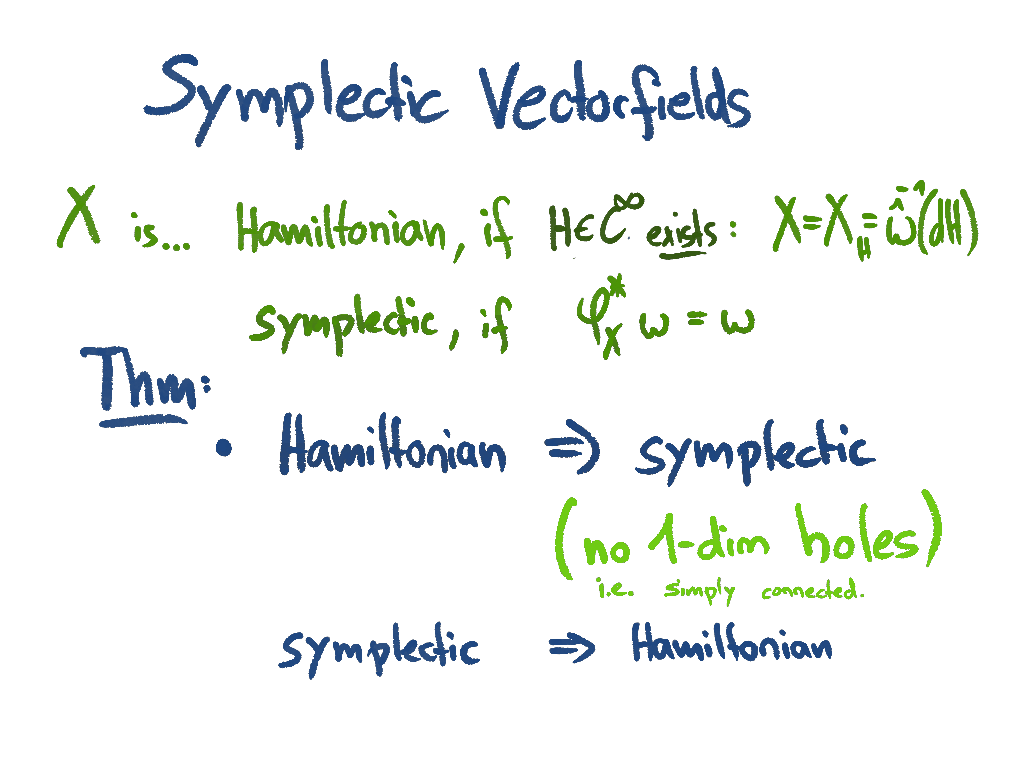 Symplectic Vectorfields
X is... Hamiltonian, if H∈C^∞ exists: X=X_H=ω̂^{-1}(dH)
symplectic, if φ_X^* ω = ω
Thm:
• Hamiltonian ⇒ symplectic
(no 1-dim holes)
i.e. simply connected.
symplectic ⇒ Hamiltonian